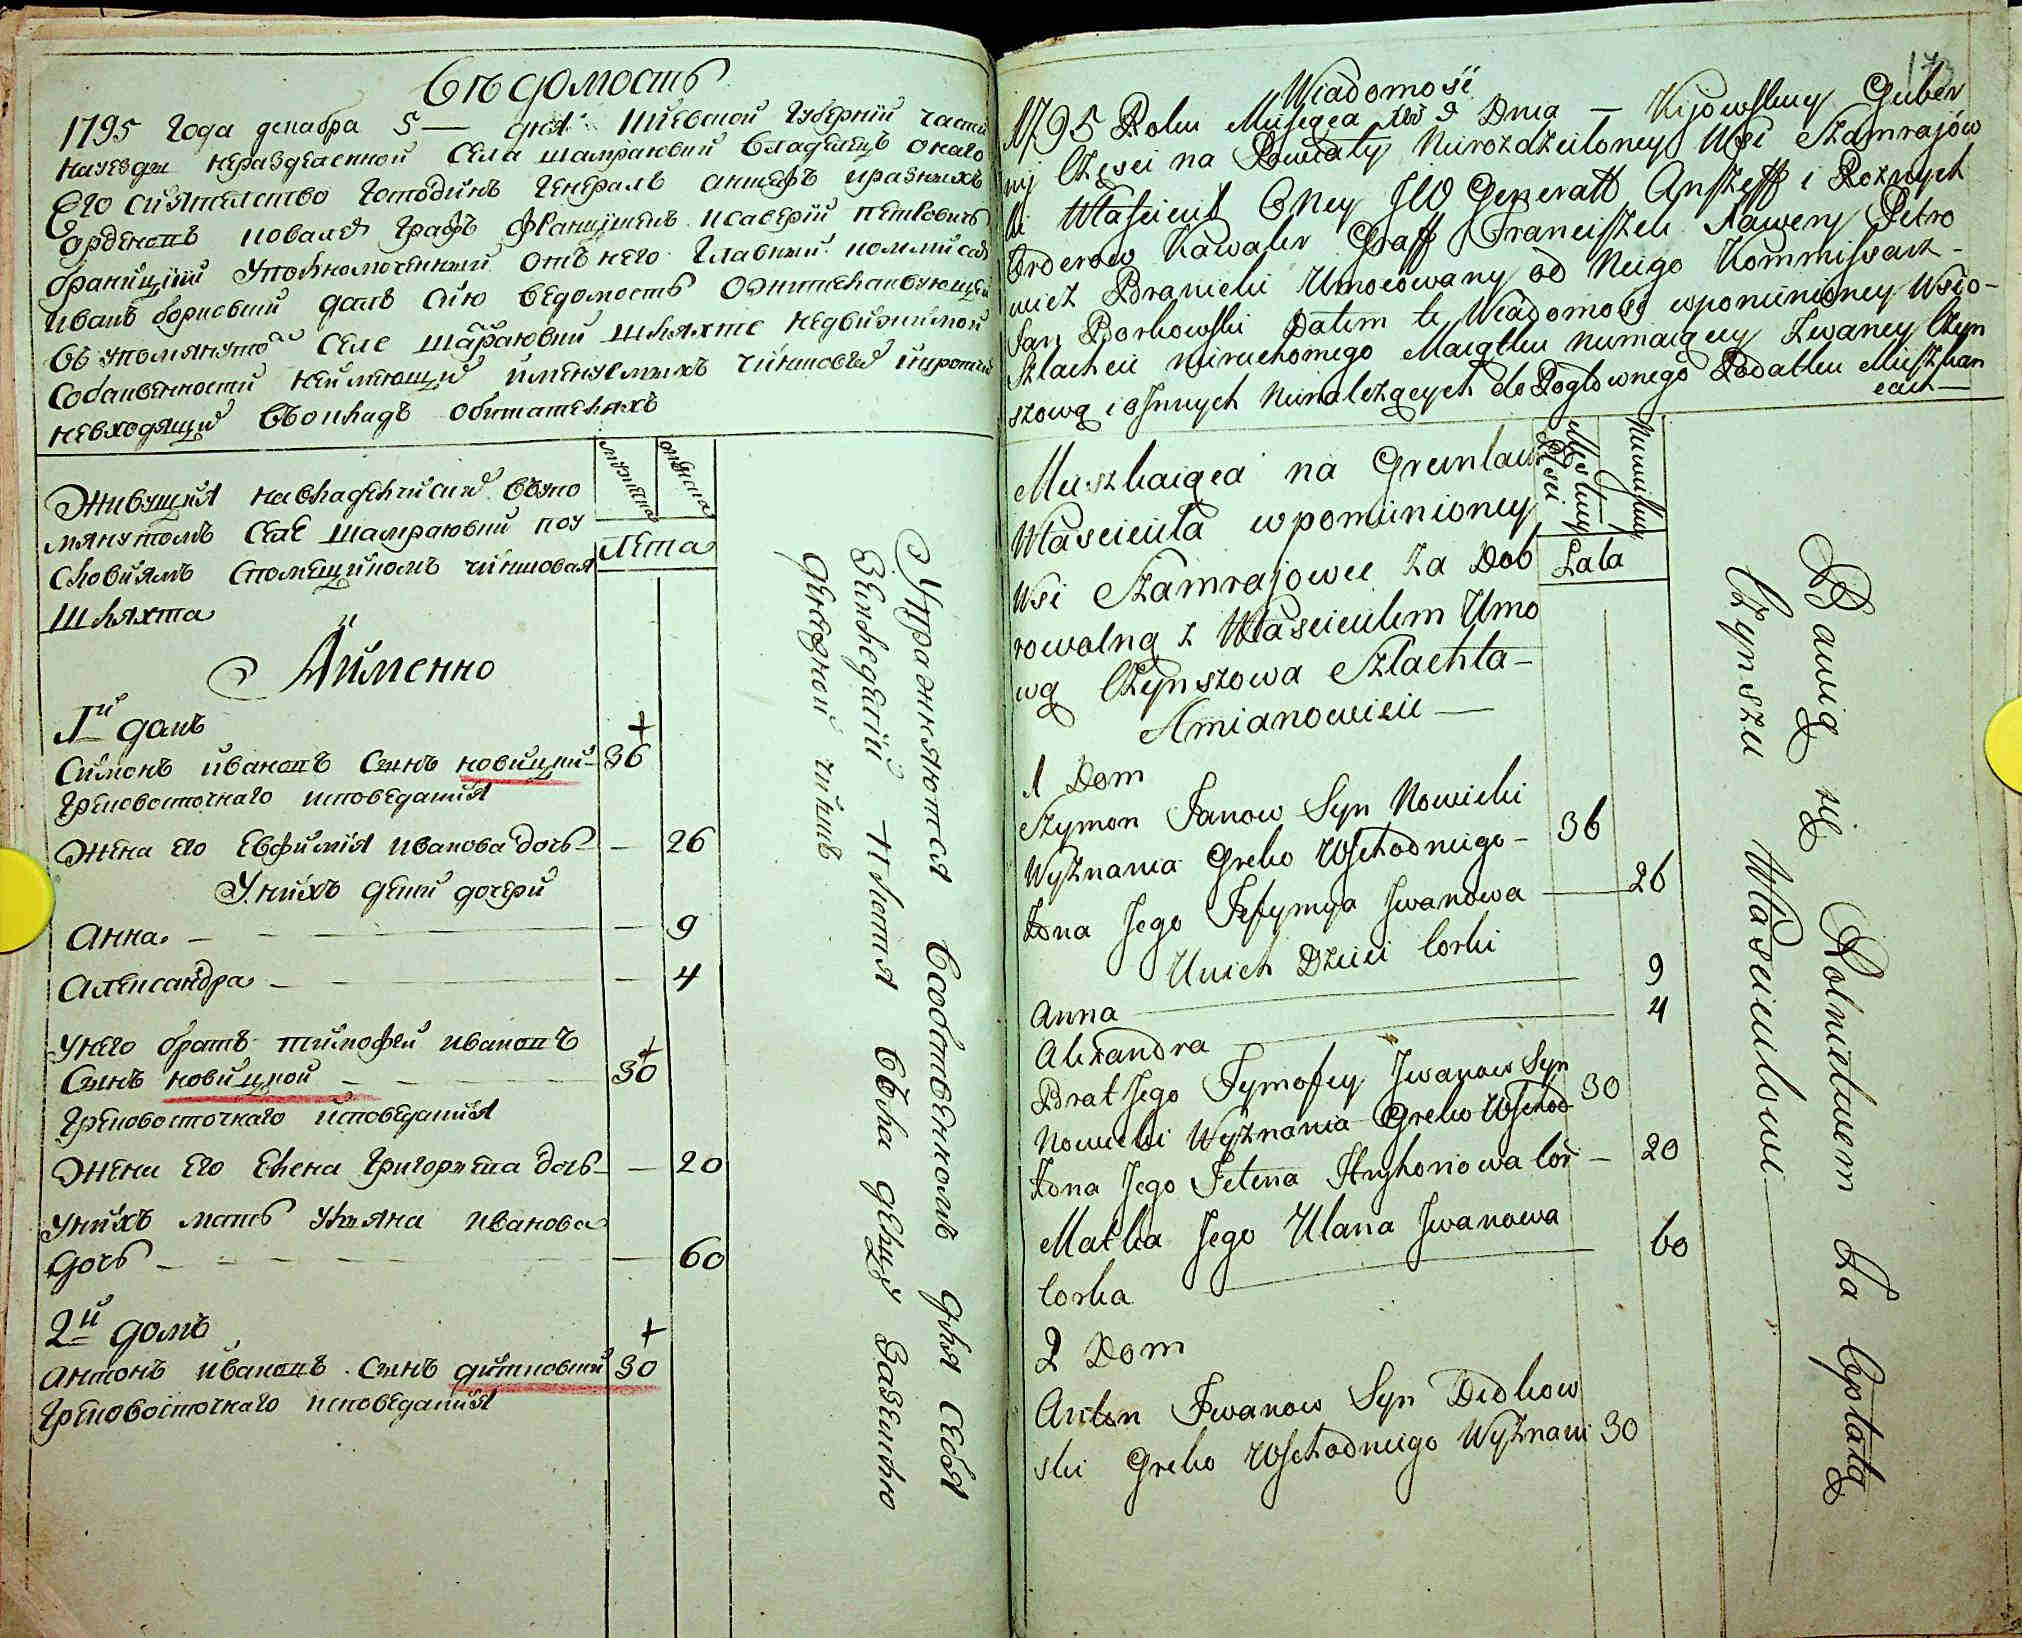 Вѣдомость
1795 Года декабря 5 — дня Киевской Губернїи части
на уезды неразделенной Села Шамраювки Владелецъ онаго
Его сиятельство Господинъ Генералъ аншефъ и разныхъ
Орденовъ Ковалеръ Графъ Францишекъ Ксаверїй Петровичъ
Браницкїй Уполномоченный отъ него Главный коммисаръ
Иванъ Борковскїй далъ сию ведомость о жительствующей
въ упомянутомъ Селе Шамраювки Шляхте недвижимой
Собственности неимеющей именуемыхъ чиншовыя и протчий
невходящия въ окладъ обитателяхъ
Живущия на владенчиские въ упо
мянутомъ Селе Шамраювки поу
словиямъ спомещикомъ чиншовая
Шляхта
Аименно
мужеска
женска
Лета
1й домъ
Симонъ Ивановъ Сынъ новицкий 36
Грековосточнаго исповеданиѧ
Жена его Евфимїя Иванова дочь — 26
Унихъ дети дочери
Анна — 9
Александра — 4
Унего братъ тимофеи Ивановъ
Сынъ новицкой — 30
Грековосточнаго исповеданиѧ
Жена его Елена Григорьева дочь — 20
Унихъ мать Ульяна Иванова
дочь — 60
2й домъ
Антонъ Ивановъ Сынъ дитковский 30
Грековосточнаго исповеданиѧ
Упражняются всобственномъ для себя
Земледелїи платя въскладенцу Заземлю
денежной чиншъ
173
Wiadomość
1795 Roku Miesięca Xbr 5 Dnia — Kijowskiey Guber
nij Częsci na Powiaty Nierozdzieloney Wsi Szamrajów
ki Właściciel Oney JW Generałł Anszeff i Rożnych
Orderow Kawaler Graff Franciszek Xawery Petro
wicz Branicki Umocowany od Niego Kommissarz
Jan Borkowski Dałem tę Wiadomość wpomnioney Wsio
Szlachcie nieruchomego Maiątku niemaiący Zwaney Czyn
szową i ofnnych Nienależących do Pogłownego Podatku Mieszkan
cach
Mieszkaiąca na Gruntach
Właściciela wpomnioney
Wsi Szamrajowce za Dob
rowolną z Właścicielem Umo
wą Czynszowa Szlachta —
Amianowicie —
Męskiey
Płci
Niewieskiey
Lata
1 Dom
Szymon Janow Syn Nowicki
Wyznania Greko Wschodniego — 36
Żona Jego Jefymya Jwanowa — 26
Unich Dzieci Corki
Anna — 9
Alexandra — 4
Brat Jego Tymofey Jwanow Syn
Nowicki Wyznania Greko Wschod 30
Żona Jego Jelena Hryhorowa cor — 20
Matka Jego Ulana Jwanowa
Corka — 60
2 Dom
Anton Jwanow Syn Didkow
ski Greko Wschodniego Wyznani 30
Bawią się Rolnictwem Za Opłatą
Czynszu Włascicielowi —